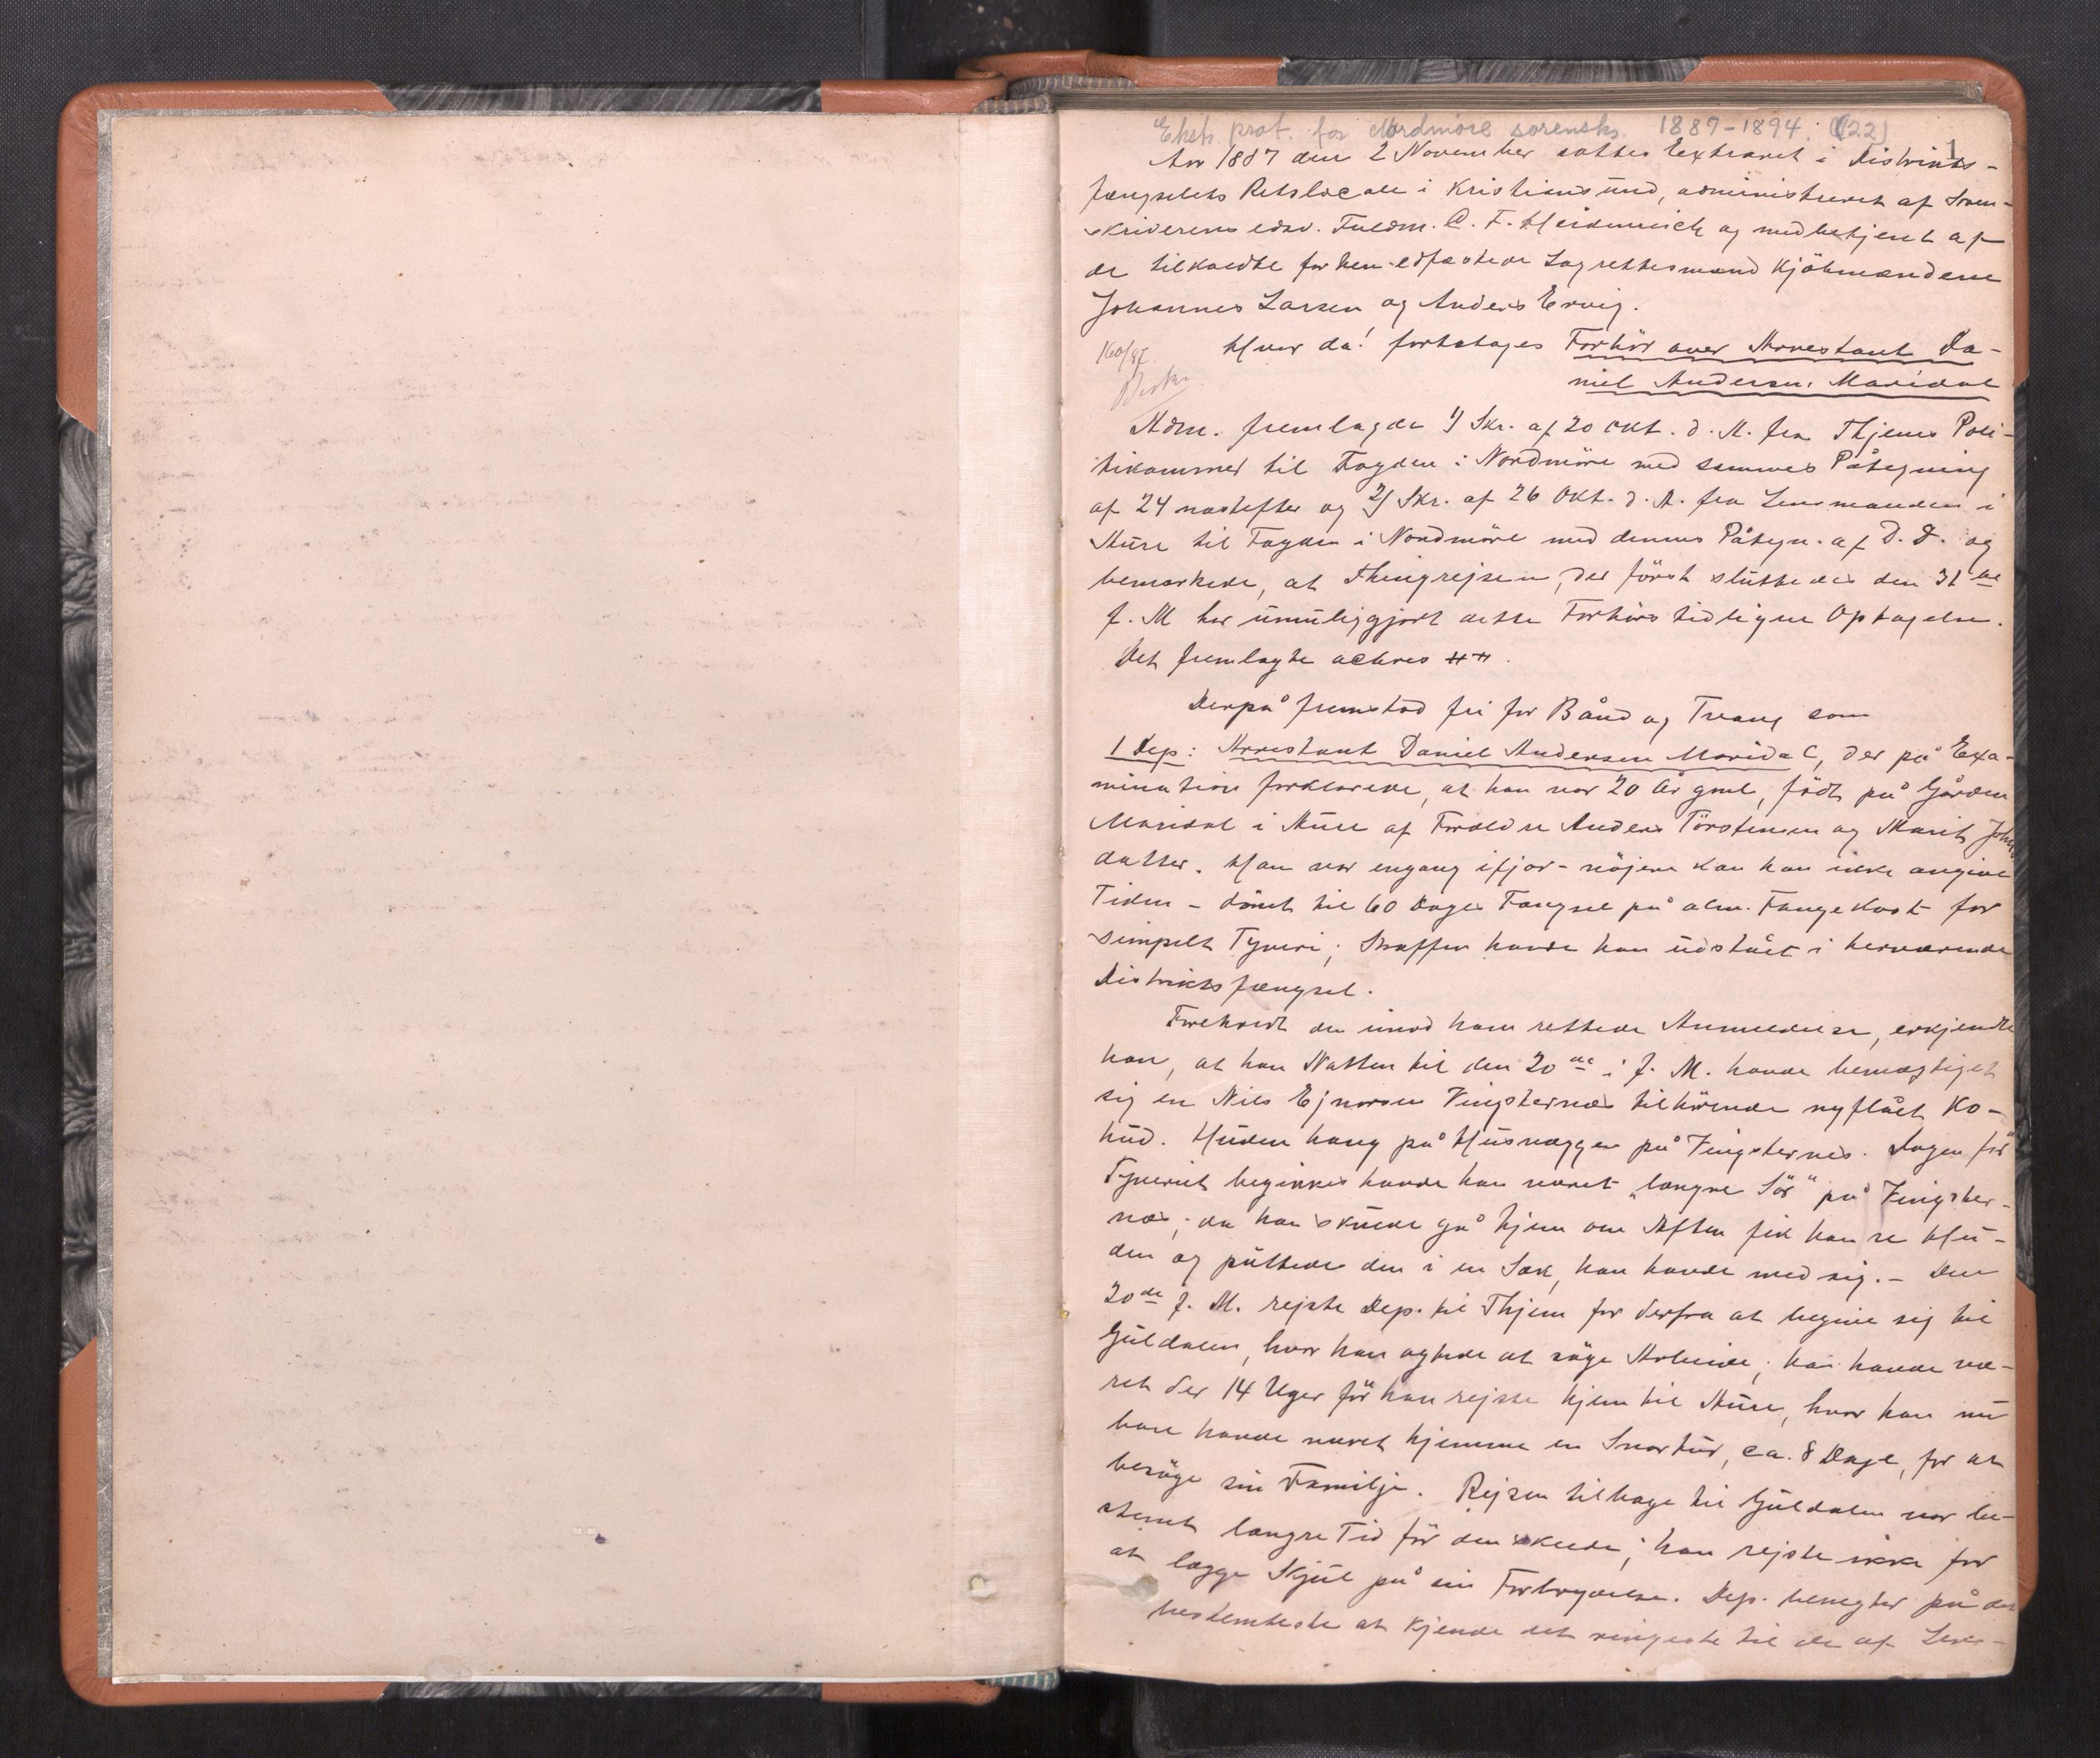 Ekstr. prot. for Nordmöre sorensks. 1887-1894. (22)
1
Aar 1887 den 2 November sattes Extraret i Distrikts-
fængselets Retslocale i Kristiansund, administreret af Soren-
skriverens edsv. Fuldm. C. F. Heidenreich og medbetjent af
de tilkaldte forhen edfæstede Lagrettesmænd Kjöbmændene
Johannes Larsen og Anders Ervig.
160/87 Hvor da! foretoges Forhör over Arrestant Da-
niel Andersen Maridal
Adm. fremlagde 1) Skr. af 20 Okt. d. A. fra Thjems Poli-
tikammer til Fogden i Nordmöre med sammes Påtegning
af 24 næstefter og 2) Skr. af 26 Okt. d. A. fra Lensmanden i
Aure til Fogden i Nordmöre med dennes Påtegn. af D. D. og
bemærkede, at Thingrejsen, der först sluttedes den 31 te
f. M har umuliggjort dette Forhörs tidligere Optagelse.
Det fremlagte acteres
Derpå fremstod fri for Bånd og Tvang som
1 Dep: Arrestant Daniel Andersen Maridal, der på Exa-
mination forklarede, at han var 20 År gml, födt på Gården
Maridal i Aure af Forældre Anders Törstensen og Marit
datter. Han var engang ifjor - nöjere kan han ikke angive
Tiden - dömt til 60 Dages Fængsel på alm. Fangekost for
simpelt Tyveri; Straffen havde han udstået i herværende
Distriktsfængsel.
Foreholdt den imod ham rettede Anmeldelse, erkjendte
han, at han Natten til den 20 de i f. M. havde bemægtiget
sig en Nils Ejnarsen Vingsternes tilhörende nyflået Ko-
hud. Huden hang på Husvæggen på Vingsternes. Dagen för
Tyveriet beginkes havde han været "længre Sör" på Vingster-
nes; da han skulde gå hjem om Aften fik han se Hu-
den og puttede den i en Sæk, han havde med sig. - Den
20de f. M. rejste Dep. til Thjem for derfra at begive sig til
Guldalen, hvor han agtede at söge Arbeide; han havde væ-
ret der 14 Uger för han rejste hjem til Aure, hvor han nu
bare havde været hjemme en Snartur, ca. 8 Dage, for at
besöge sin Familje. Rejsen tilbage til Guldalen var be-
stemt længre Tid för den skede; han rejste ikke for
at lægge Skjul på sin Forbrydelse. Dep. benegter på det
bestemteste at kjende det ringeste til de af Lens-